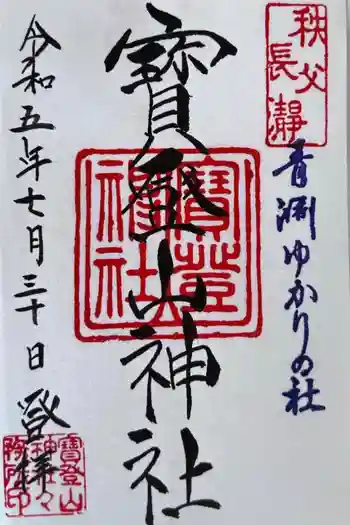 秩父
長瀞
青淵ゆかりの社
寳登山神社
寳登山
神社
令和五年七月三十日
登拝
寳登山
神社々
務所印